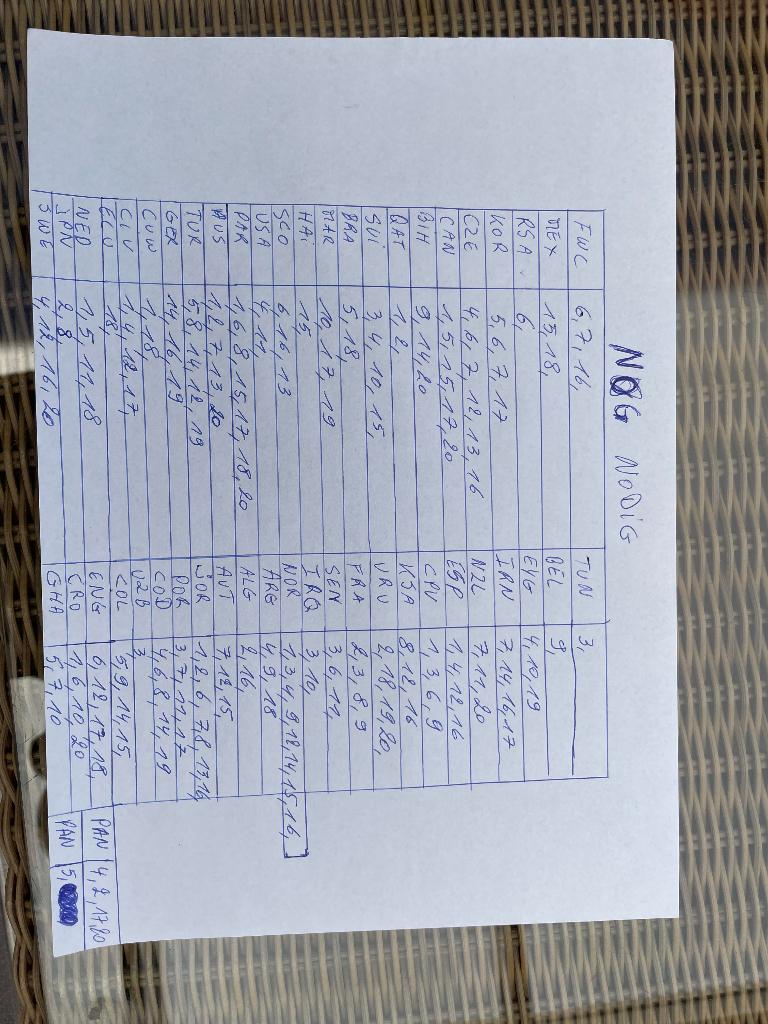 NOG NODIG
FWC 6, 7, 16, TUN 3,
MEX 15, 18, BEL 9,
RSA 6, EVG 4, 10, 19
KOR 5, 6, 7, 17 IRN 7, 14, 16, 17
CZE 4, 6, 7, 12, 13, 16 NZL 7, 11, 20
CAN 1, 5, 15, 17, 20 ESP 1, 4, 12, 16
BIH 9, 14, 20 CPV 1, 3, 6, 9
QAT 1, 2, KSA 8, 12, 16
SUI 3, 4, 10, 15, URU 2, 18, 19, 20,
BRA 5, 18, FRA 2, 3, 8, 9
MAR 10, 17, 19 SEN 3, 6, 11,
HAI 15, IRQ 3, 10,
SCO 6, 16, 13 NOR 1, 3, 4, 9, 12, 14, 15, 16,
USA 4, 11 ARG 4, 9, 18
PAR 1, 6, 8, 15, 17, 18, 20 ALG 2, 16,
AUS 1, 2, 7, 13, 20 AUT 7, 12, 15,
TUR 5, 8, 14, 12, 19 JOR 1, 2, 6, 7, 8, 13, 16,
GER 14, 16, 19 POR 3, 7, 11, 17,
CUW 1, 18, COD 4, 6, 8, 14, 19
CIV 1, 4, 12, 17, UZB 3
ECU 18, COL 5, 9, 14, 15,
NED 1, 5, 11, 18 ENG 6, 12, 17, 18, PAN 4, 2, 17, 20
JPN 2, 8 CRO 1, 6, 10, 20 PAN 5,
SWE 4, 12, 16, 20 GHA 5, 7, 10